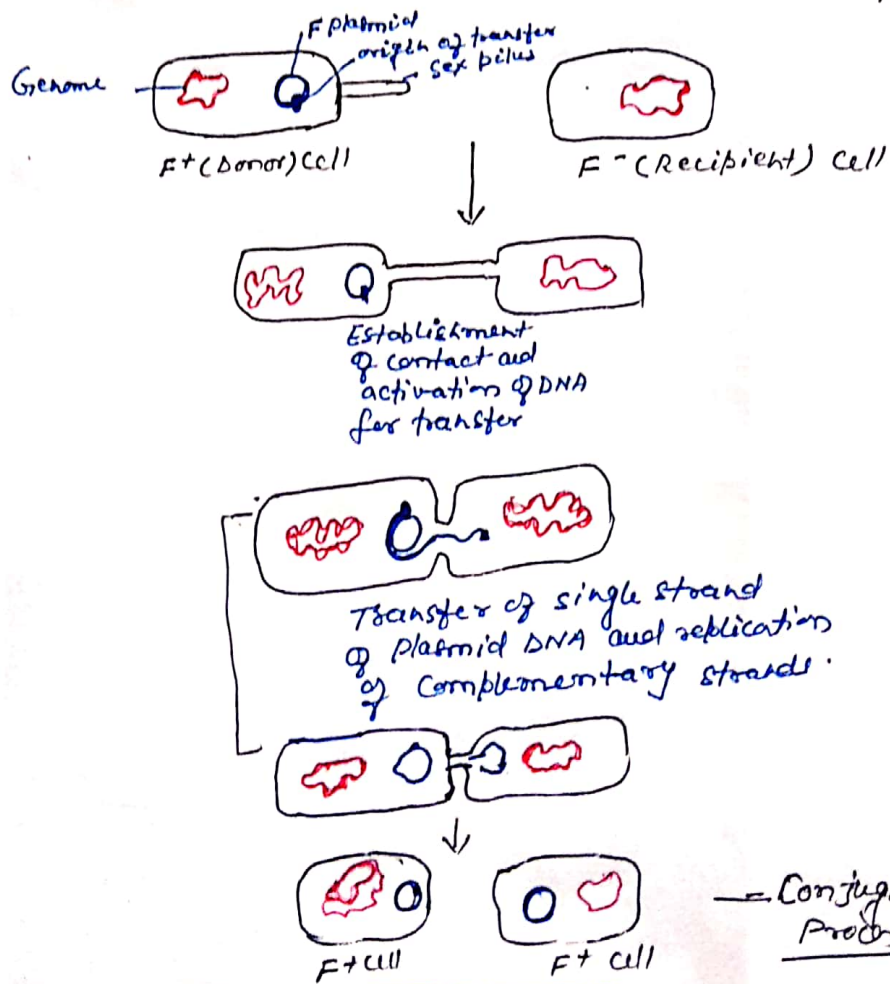 F plasmid
origin of transfer
sex pilus
Genome
F+ (Donor) Cell
F- (Recipient) Cell
Establishment
of contact and
activation of DNA
for transfer
Transfer of single strand
of plasmid DNA and replication
of complementary strands.
F+ cell
F+ cell
— Conjug